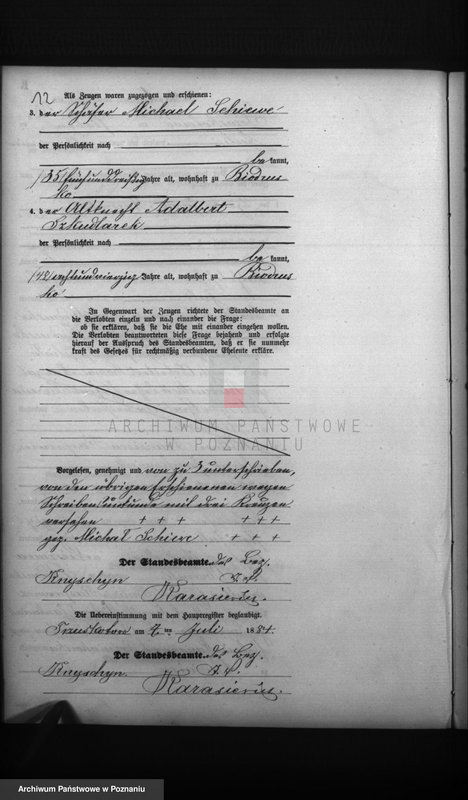 12
Als Zeugen waren zugezogen und erschienen:
3. der Schäfer Michael Schiewe
der Persönlichkeit nach
be kannt,
(35) fünfunddreißig Jahre alt, wohnhaft zu
4. der Adalbert
Szkudlarek
der Persönlichkeit nach
be kannt,
achtundvierzig Jahre alt, wohnhaft zu
In Gegenwart der Zeugen richtete der Standesbeamte an
die Verlobten einzeln und nach einander die Frage:
ob sie erklären, daß sie die Ehe mit einander eingehen wollen.
Die Verlobten beantworteten diese Frage bejahend und erfolgte
hierauf der Ausspruch des Standesbeamten, daß er sie nunmehr
kraft des Gesetzes für rechtmäßig verbundene Eheleute erkläre.
ARCHIWUM PAŃSTWOWE
W POZNANIU
Vorgelesen, genehmigt und von zu 3 unterschrieben,
von den übrigen Erschienenen wegen
Schreibensunkunde mit drei Kreuzen
versehen + + + + + +
gez. Michal Schiewe + + +
Der Standesbeamte. des Bez.
Knyschyn
Karasiewicz.
Die Uebereinstimmung mit dem Hauptregister beglaubigt.
am ten Juli 1884.
Der Standesbeamte. des Bez.
Knyschyn.
Karasiewicz.
Archiwum Państwowe w Poznaniu